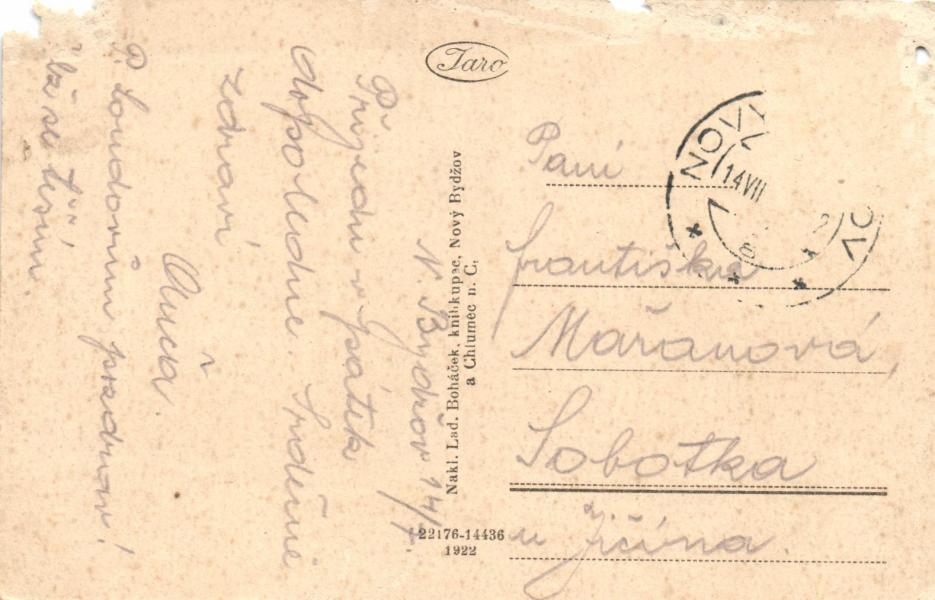 Jaro
N. Bydžov 14/7.
Přijedu v pátek
dopoledne. Srdečně
zdraví
P. Loudovům pozdrav!
se těším
Paní
Františka
Mařanová
Sobotka
u Jičína.
NOVÝ
OV
14 VII
Nakl. Lad. Boháček, knihkupec, Nový Bydžov
a Chlumec n. C.
22176-14436
1922